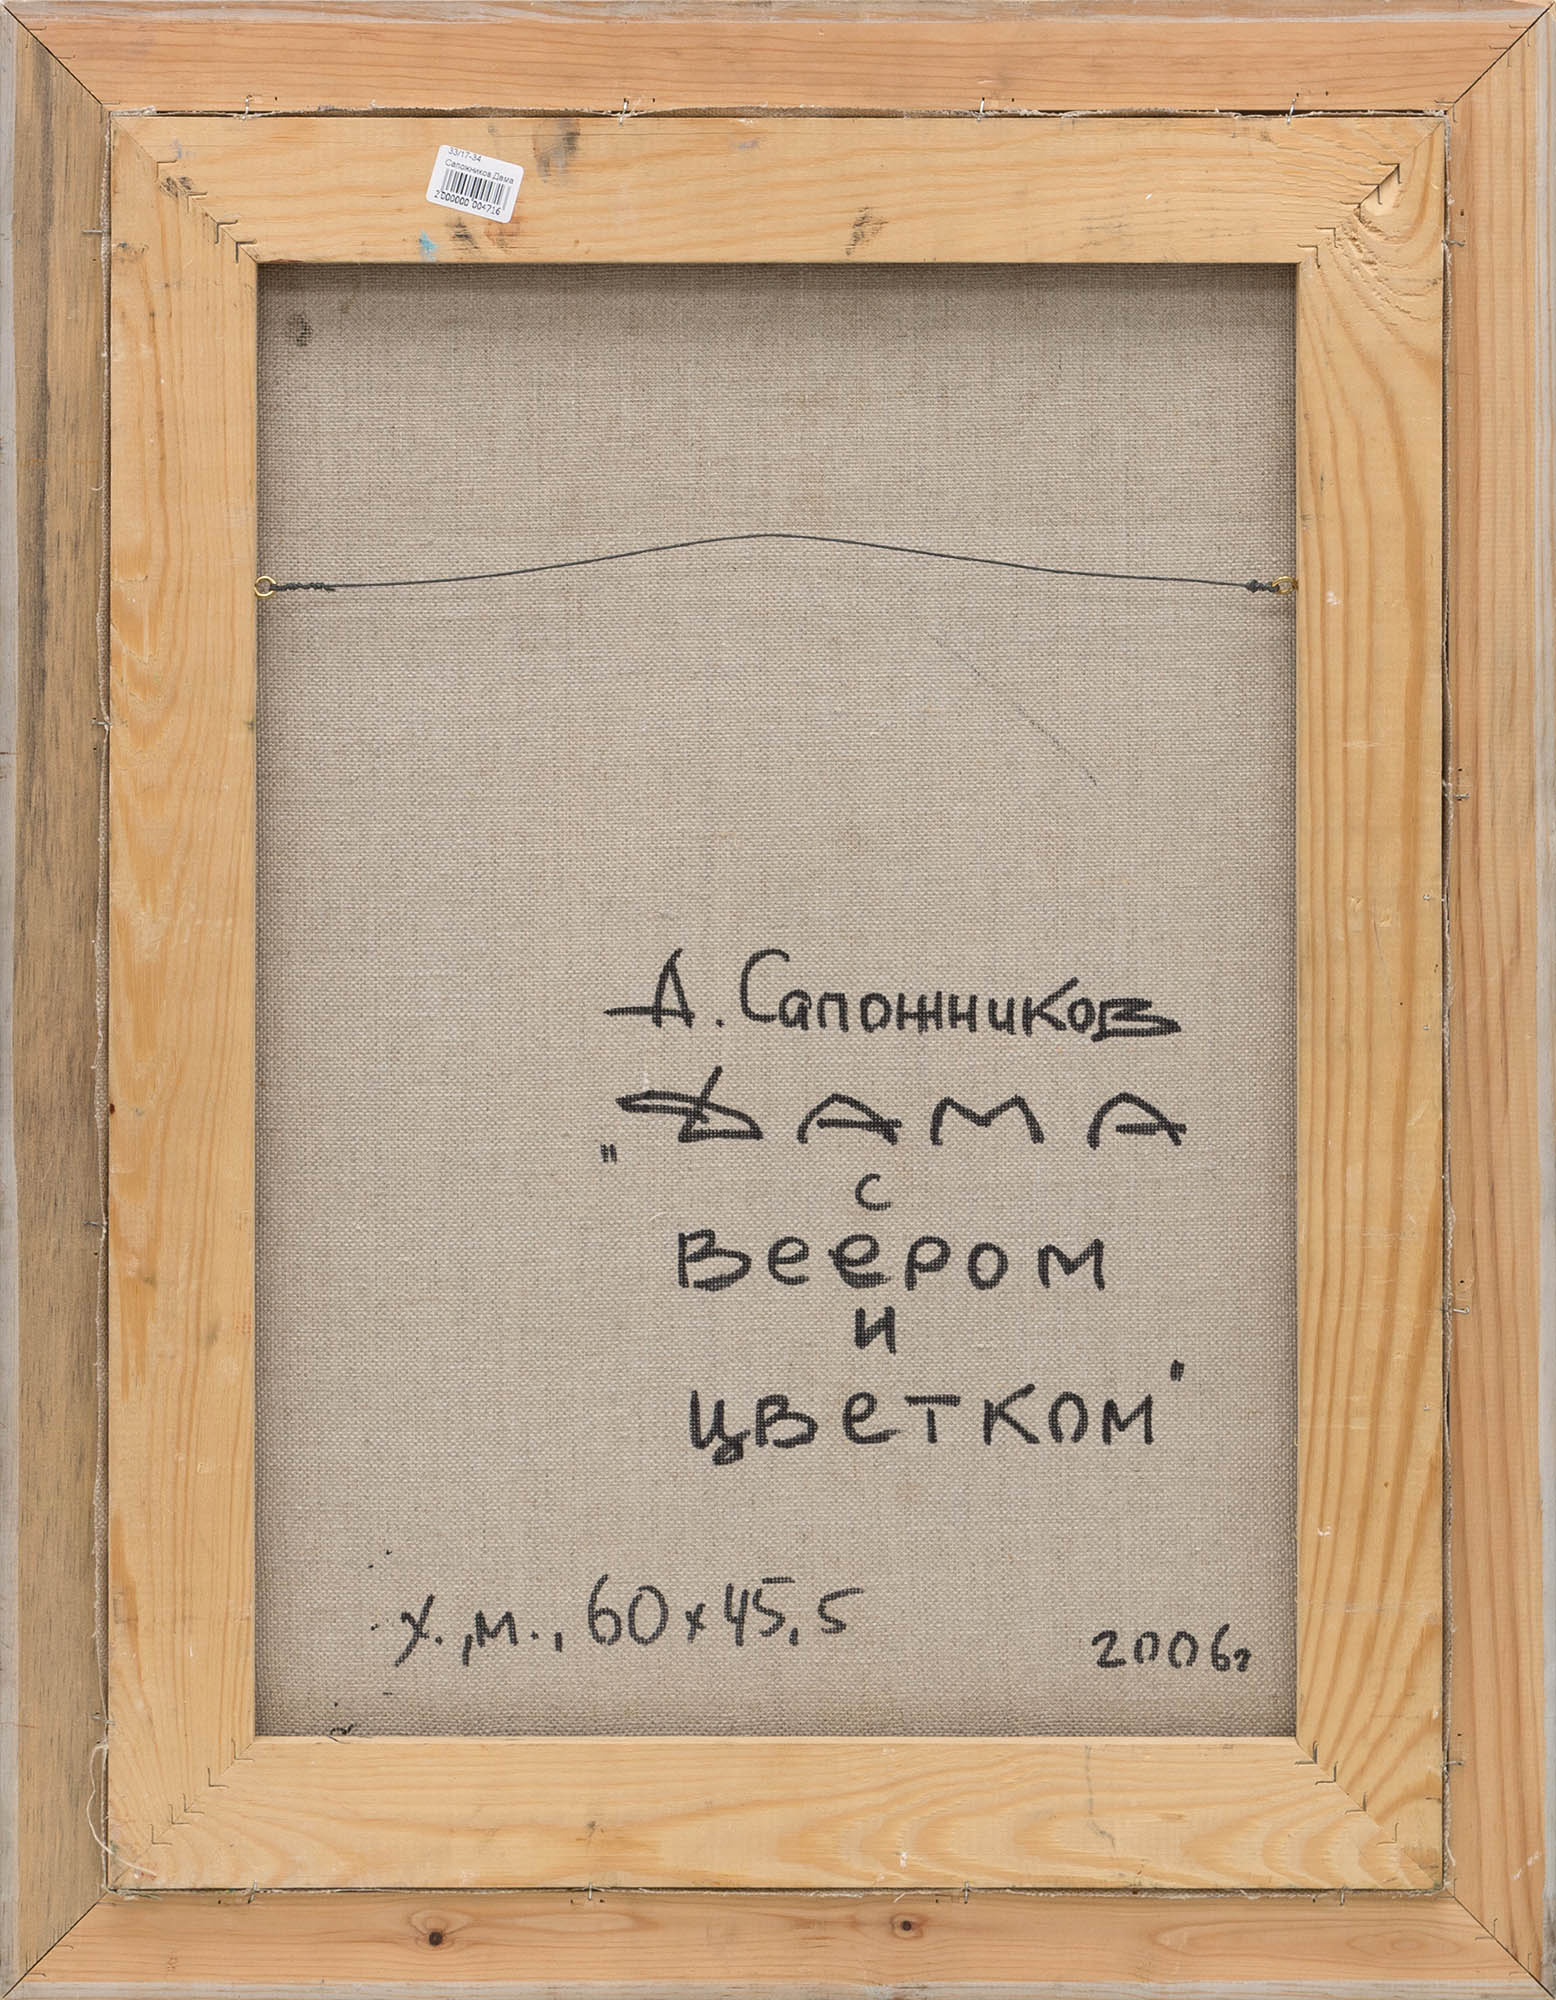 33/17-34
Сапожников Дама
2000000 004716
А. Сапожников
"Дама
с
веером
и
цветком"
х.,м., 60х45,5
2006г